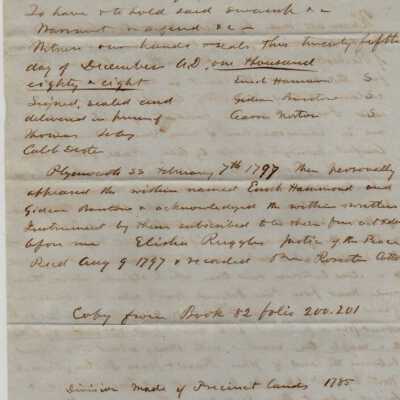 To have & to hold said
Warrant & defend &c
Witness our hands & seals this twenty fifth
day of December A.D. one thousand
eighty & eight Enoch Hammond S
Signed, sealed and Gideon S
delivered in Aaron Norton S
Thomas
Caleb
Plymouth ss February 7th 1797 Then personally
appeared the within named Enoch Hammond and
Gideon & acknowledged the within written
Instrument by them subscribed to be their free act & deed
before me Elisha Ruggles Justice of the Peace
Recd Aug 9 1797 & recorded Attest
Coby from Book 82 folio 200.201
Division Made of Precinct Lands 1785